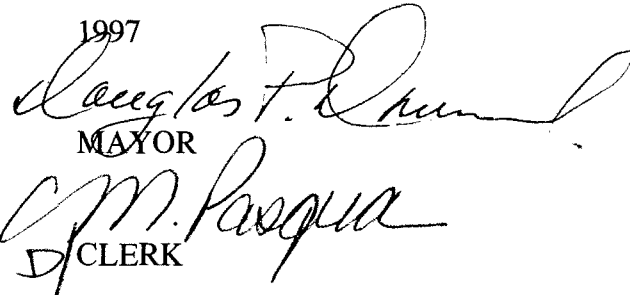 1997
Douglas P.
MAYOR
C M. Pasqua
D/CLERK